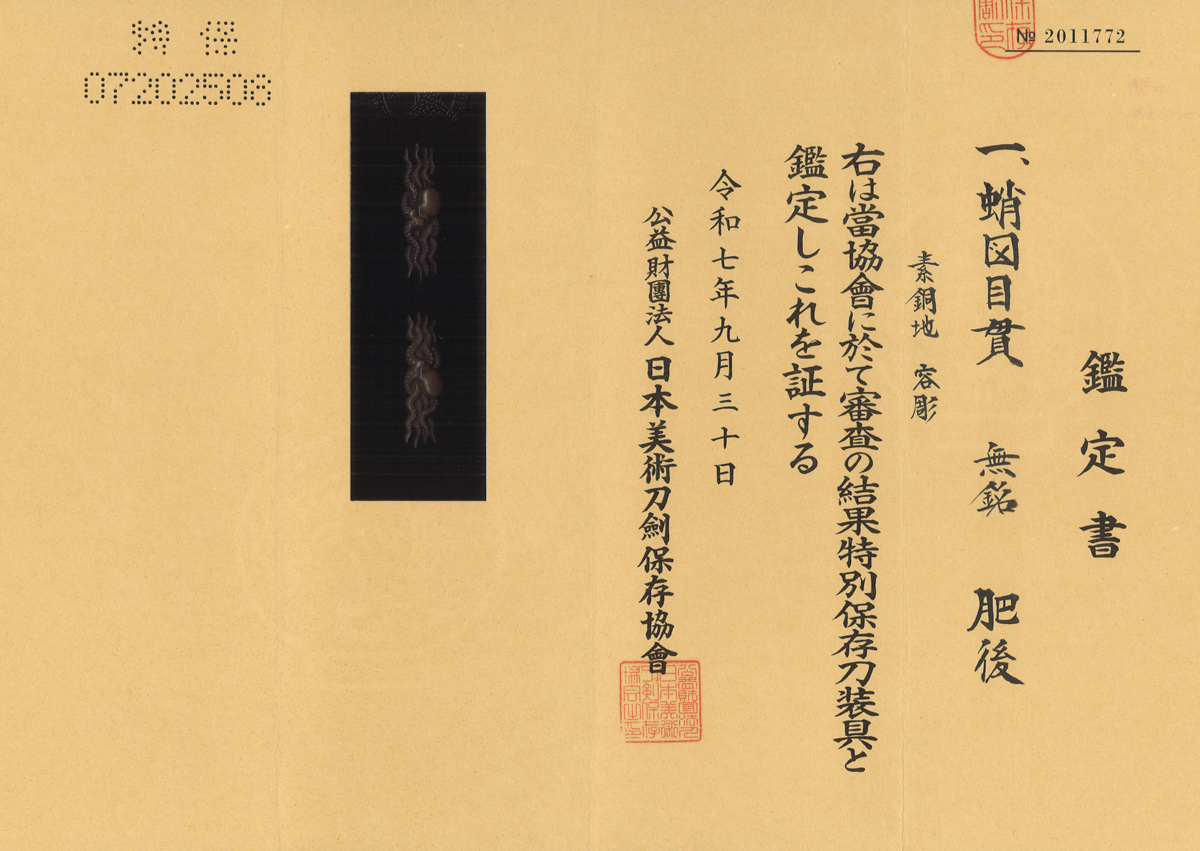 № 2011772
鑑定書
一、蛸図目貫 無銘 肥後
素銅地 容彫
右は當協會に於て審査の結果特別保存刀装具と
鑑定しこれを証する
令和七年九月三十日
公益財團法人 日本美術刀劍保存協會
特 保
07202508